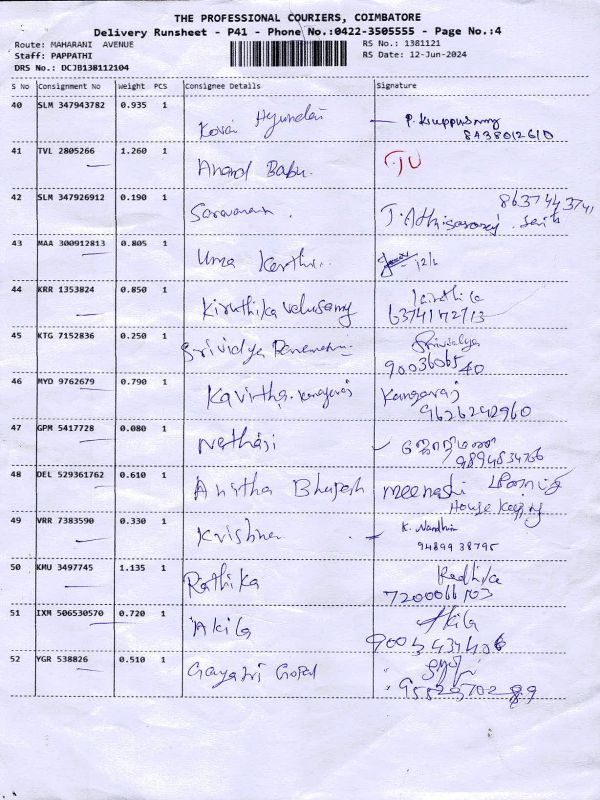 THE PROFESSIONAL COURIERS, COIMBATORE
Delivery Runsheet - P41 - Phone No.:0422-3505555 - Page No.:4
Route: MAHARANI AVENUE RS No.: 1381121
Staff: PAPPATHI RS Date: 12-Jun-2024
DRS No.: DCJB138112104
S No Consignment No Weight PCS Consignee Details Signature
40 SLM 347943782 0.935 1 Kovai Hyundai P. Kruppusamy
8438012610
41 TVL 2805266 1.260 1 Anand Babu.
42 SLM 347926912 0.190 1 Saravanan .
43 MAA 300912813 0.805 1 Uma
44 KRR 1353824 0.850 1 Kiruthika velusamy
6374172713
45 KTG 7152836 0.250 1 Srividya Srividya
9003606540
46 MYD 9762679 0.790 1 Kavitha. Kanagaraj Kangaraj
9626242960
47 GPM 5417728 0.080 1 Nethasi
9894834766
48 DEL 529361762 0.610 1 Anitha Bhupesh meenashi
House Keeping
49 VRR 7383590 0.330 1 Krishna K. Nandhini
9489938795
50 KMU 3497745 1.135 1 Rathika Radhika
7200066103
51 IXM 506530570 0.720 1 Akila Akila
52 YGR 538826 0.510 1 Gayatri Gopal